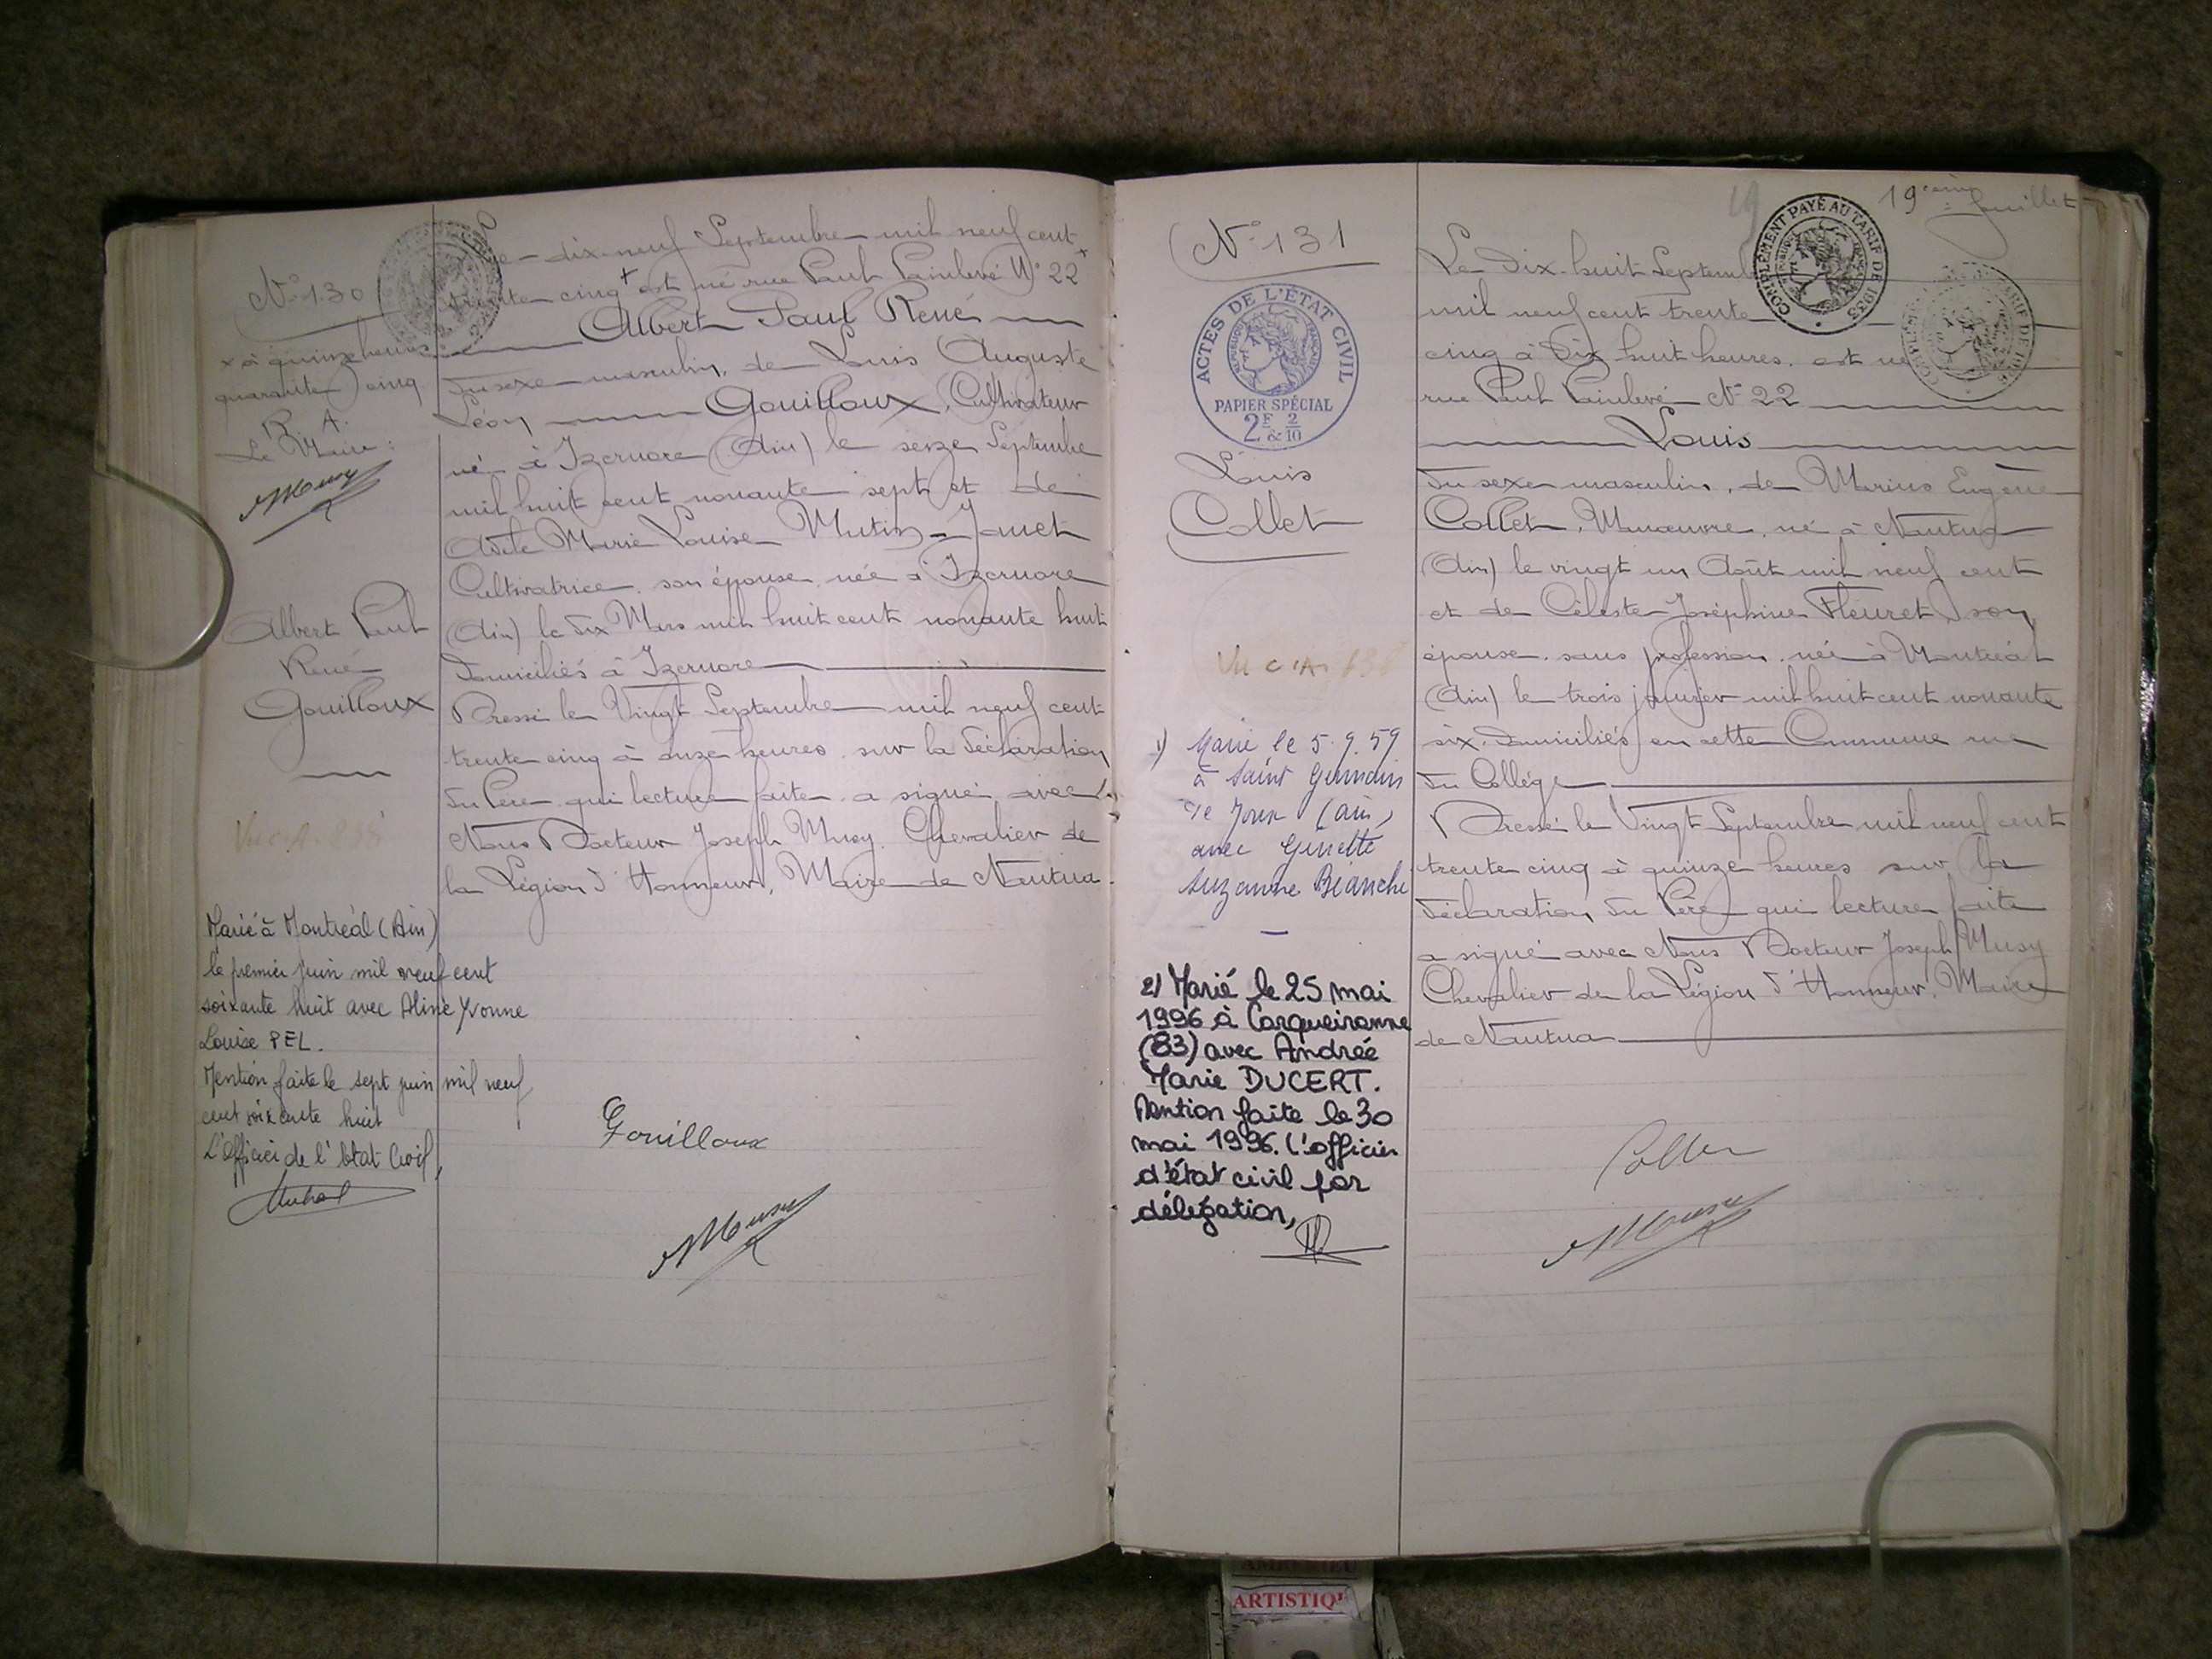 N° 130
x à quinze heures
quarante cinq
R. A.
Le Maire :
Musy
Albert Paul
René
Gouilloux
Vu C.A. 838
Marié à Montréal (Ain)
le premier juin mil neuf cent
soixante huit avec Aline Yvonne
Louise PEL.
Mention faite le sept juin mil neuf
cent soixante huit
L'Officier de l'Etat Civil,
Le dix-neuf Septembre mil neuf cent
trente cinq + est né rue Paul Painlevé N° 22
Albert Paul René
du sexe masculin, de Louis Auguste
Léon Gouilloux, Cultivateur
né à Izernore (Ain) le seize Septembre
mil huit cent nonante sept et de
Adèle Marie Louise Mutin-Janet
Cultivatrice, son épouse, née à Izernore
(Ain) le dix Mars mil huit cent nonante huit
Domiciliés à Izernore
Dressé le Vingt Septembre mil neuf cent
trente cinq à onze heures, sur la déclaration
du Père qui lecture faite a signé avec
Nous Docteur Joseph Musy, Chevalier de
la Légion d'Honneur, Maire de Nantua.
Gouilloux
Musy
N° 131
ACTES DE L'ÉTAT CIVIL
RÉPUBLIQUE FRANÇAISE
PAPIER SPÉCIAL
2F & 2/10
Louis
Collet
Vu C.A. 838
1) Marié le 5.9.59
à Saint Germain
de Joux (ain)
avec Ginette
Suzanne Bianchi
2) Marié le 25 mai
1996 à Carqueiranne
(83) avec Andrée
Marie DUCERT.
Mention faite le 30
mai 1996. L'officier
d'état civil par
délégation,
19
19ème feuillet
COMPLÉMENT PAYÉ AU TARIF DE 1933
Le Dix-huit Septembre
mil neuf cent trente
cinq à Dix huit heures, est né
rue Paul Painlevé N° 22
Louis
du sexe masculin, de Marius Eugène
Collet, Manœuvre, né à Nantua
(Ain) le vingt un Août mil neuf cent
et de Céleste Joséphine Fleuret, son
épouse, sans profession, née à Montréal
(Ain) le trois janvier mil huit cent nonante
six, domiciliés en cette Commune rue
du Collège
Dressé le Vingt Septembre mil neuf cent
trente cinq à quinze heures sur la
déclaration du Père qui lecture faite
a signé avec Nous Docteur Joseph Musy
Chevalier de la Légion d'Honneur, Maire
de Nantua
Collet
Musy
ARTISTIQ